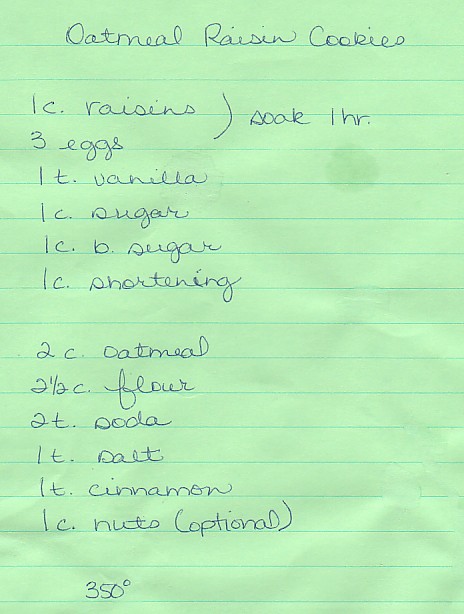 Oatmeal Raisin Cookies
1c. raisins ) soak 1 hr.
3 eggs
1t. vanilla
1c. sugar
1c. b. sugar
1c. shortening
2 c. oatmeal
2½ c. flour
2t. soda
1t. salt
1t. cinnamon
1c. nuts (optional)
350°